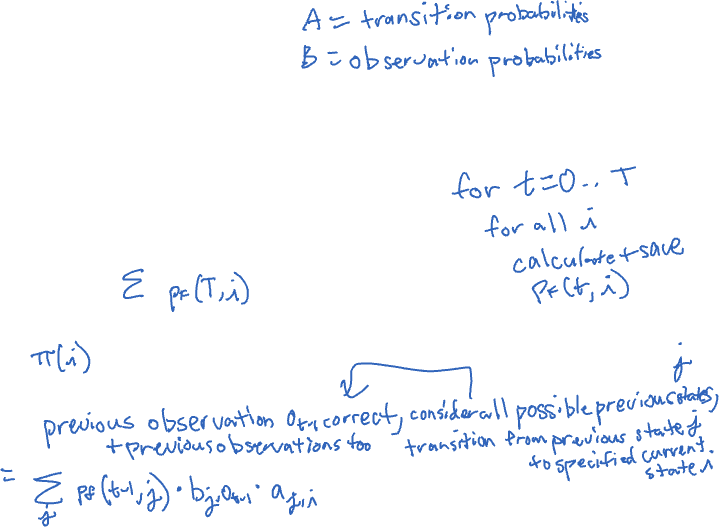 A = transition probabilities
B = observation probabilities
for t=0.. T
for all i
calculate + save
pf(t, i)
Σ pf(T, i)
π(i)
j
previous observation o_{t-1} correct, consider all possible previous states,
+ previous observations too
transition from previous state j
to specified current
state i
= Σ_j pf(t-1, j) · b_{j,o_{t-1}} · a_{j,i}